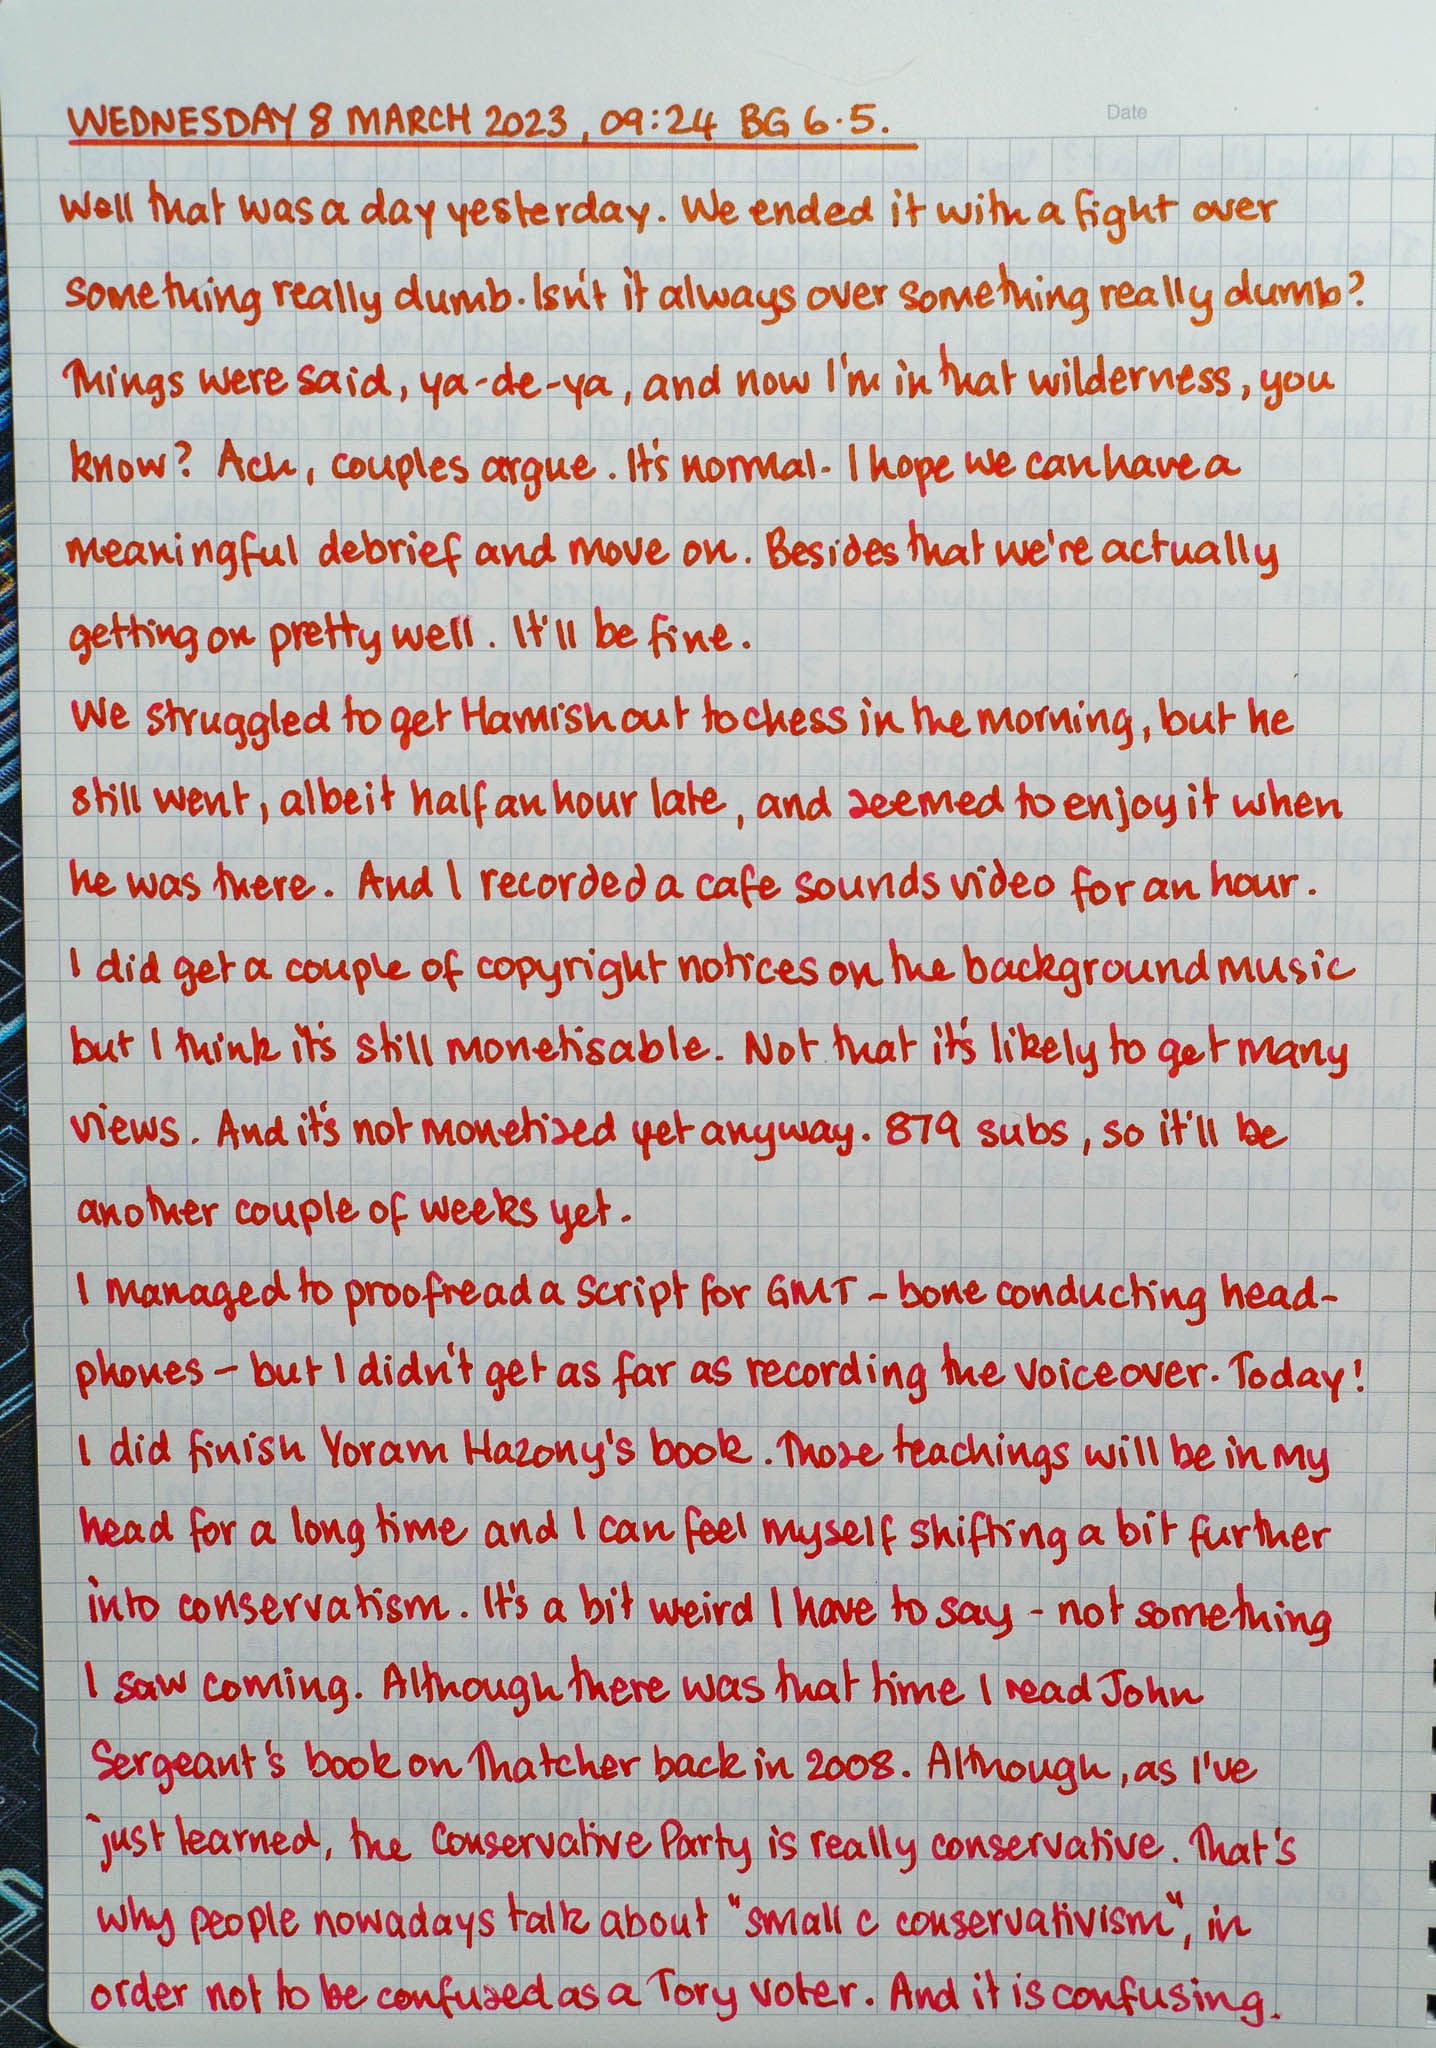 Date
WEDNESDAY 8 MARCH 2023, 09:24 BG 6.5.
Well that was a day yesterday. We ended it with a fight over
something really dumb. Isn't it always over something really dumb?
Things were said, ya-de-ya, and now I'm in that wilderness, you
know? Ach, couples argue. It's normal. I hope we can have a
meaningful debrief and move on. Besides that we're actually
getting on pretty well. It'll be fine.
We struggled to get Hamish out to chess in the morning, but he
still went, albeit half an hour late, and seemed to enjoy it when
he was there. And I recorded a cafe sounds video for an hour.
I did get a couple of copyright notices on the background music
but I think it's still monetisable. Not that it's likely to get many
views. And it's not monetised yet anyway. 879 subs, so it'll be
another couple of weeks yet.
I managed to proofread a script for GMT - bone conducting head-
phones - but I didn't get as far as recording the voiceover. Today!
I did finish Yoram Hazony's book. Those teachings will be in my
head for a long time and I can feel myself shifting a bit further
into conservatism. It's a bit weird I have to say - not something
I saw coming. Although there was that time I read John
Sergeant's book on Thatcher back in 2008. Although, as I've
just learned, the Conservative Party is really conservative. That's
why people nowadays talk about "small c conservativism", in
order not to be confused as a Tory voter. And it is confusing.